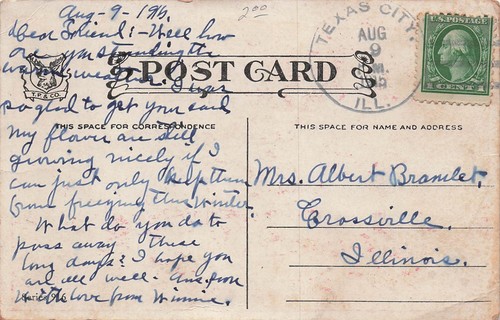 Aug-9-1916.
Dear Friend:- Well how
are you standing the
warm weather. I was
so glad to get your card
my flower are still
growing nicely if I
can just only keep them
from freezing this Winter.
What do you do to
pass away these
long days? I hope you
are all well - Ans. soon
with love from Winnie.
2.00
POST CARD
T.P. & CO.
THIS SPACE FOR CORRESPONDENCE
THIS SPACE FOR NAME AND ADDRESS
TEXAS CITY,
AUG
9
M.
ILL.
U.S. POSTAGE
Mrs. Albert Bramlet,
Crossville,
Illinois.
Series 956